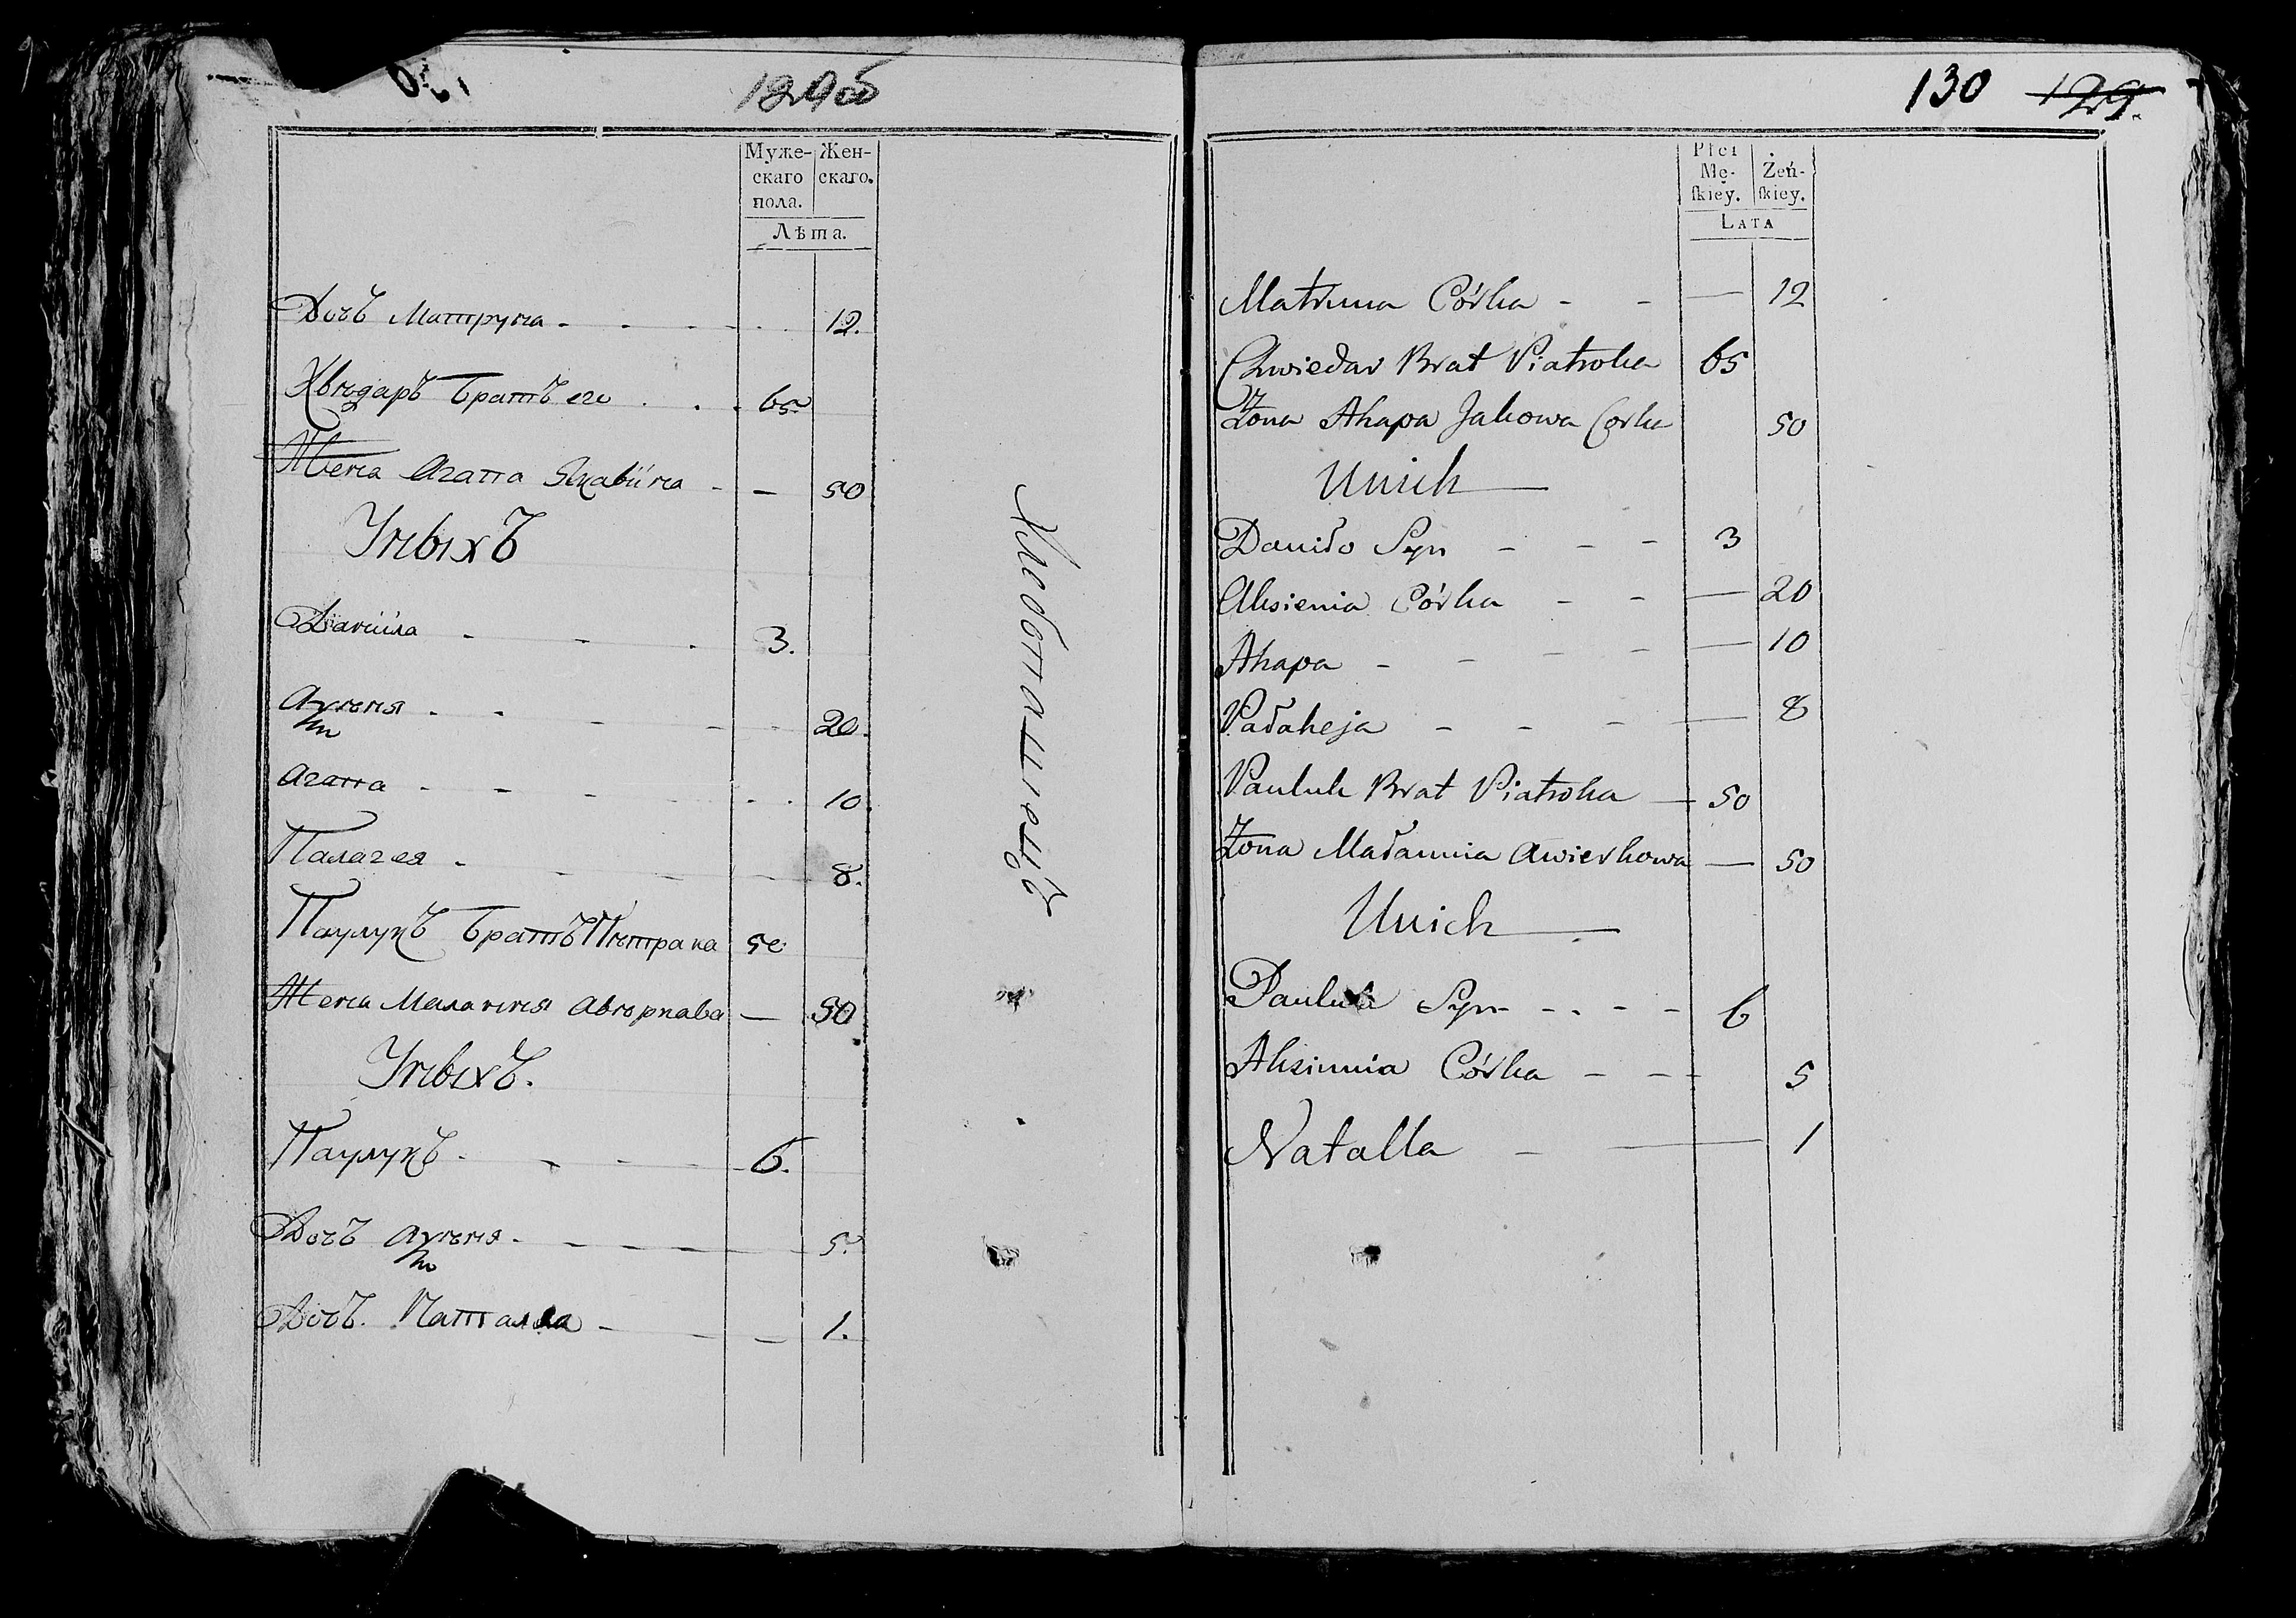 129об
Муже-
скаго
пола.
Жен-
скаго.
Лѣта.
Дочъ Матруна - 12.
Хвѣдаръ братъ его 65.
Жена Агапа Якавіна - 50
У нвыхъ
Даніила - 3.
Аксѣня - 20.
Агапа - 10.
Палагея - 8.
Паулукъ братъ Пѣтрака 50
Жена Малання Авѣркава - 50
У нвыхъ.
Паулукъ - 6.
Дочъ Аксѣня - 5.
Дочъ. Наталла - 1.
130 129.
Płci
Mę-
ſkiey.
Żeń-
ſkiey.
Lata
Matruna Córka - - — 12
Chwiedar Brat Piatroka 65
Żona Ahapa Jakowa Corka 50
U nich —
Daniło Syn - - - 3
Aksienia Córka - - — 20
Ahapa - - - - — 10
Pałaheja - - - — 8
Pauluk Brat Piatroka — 50
Żona Małannia Awierkowa — 50
U nich —
Pauluk Syn - - - - 6
Aksinnia Córka - - - 5
Natalla - — 1